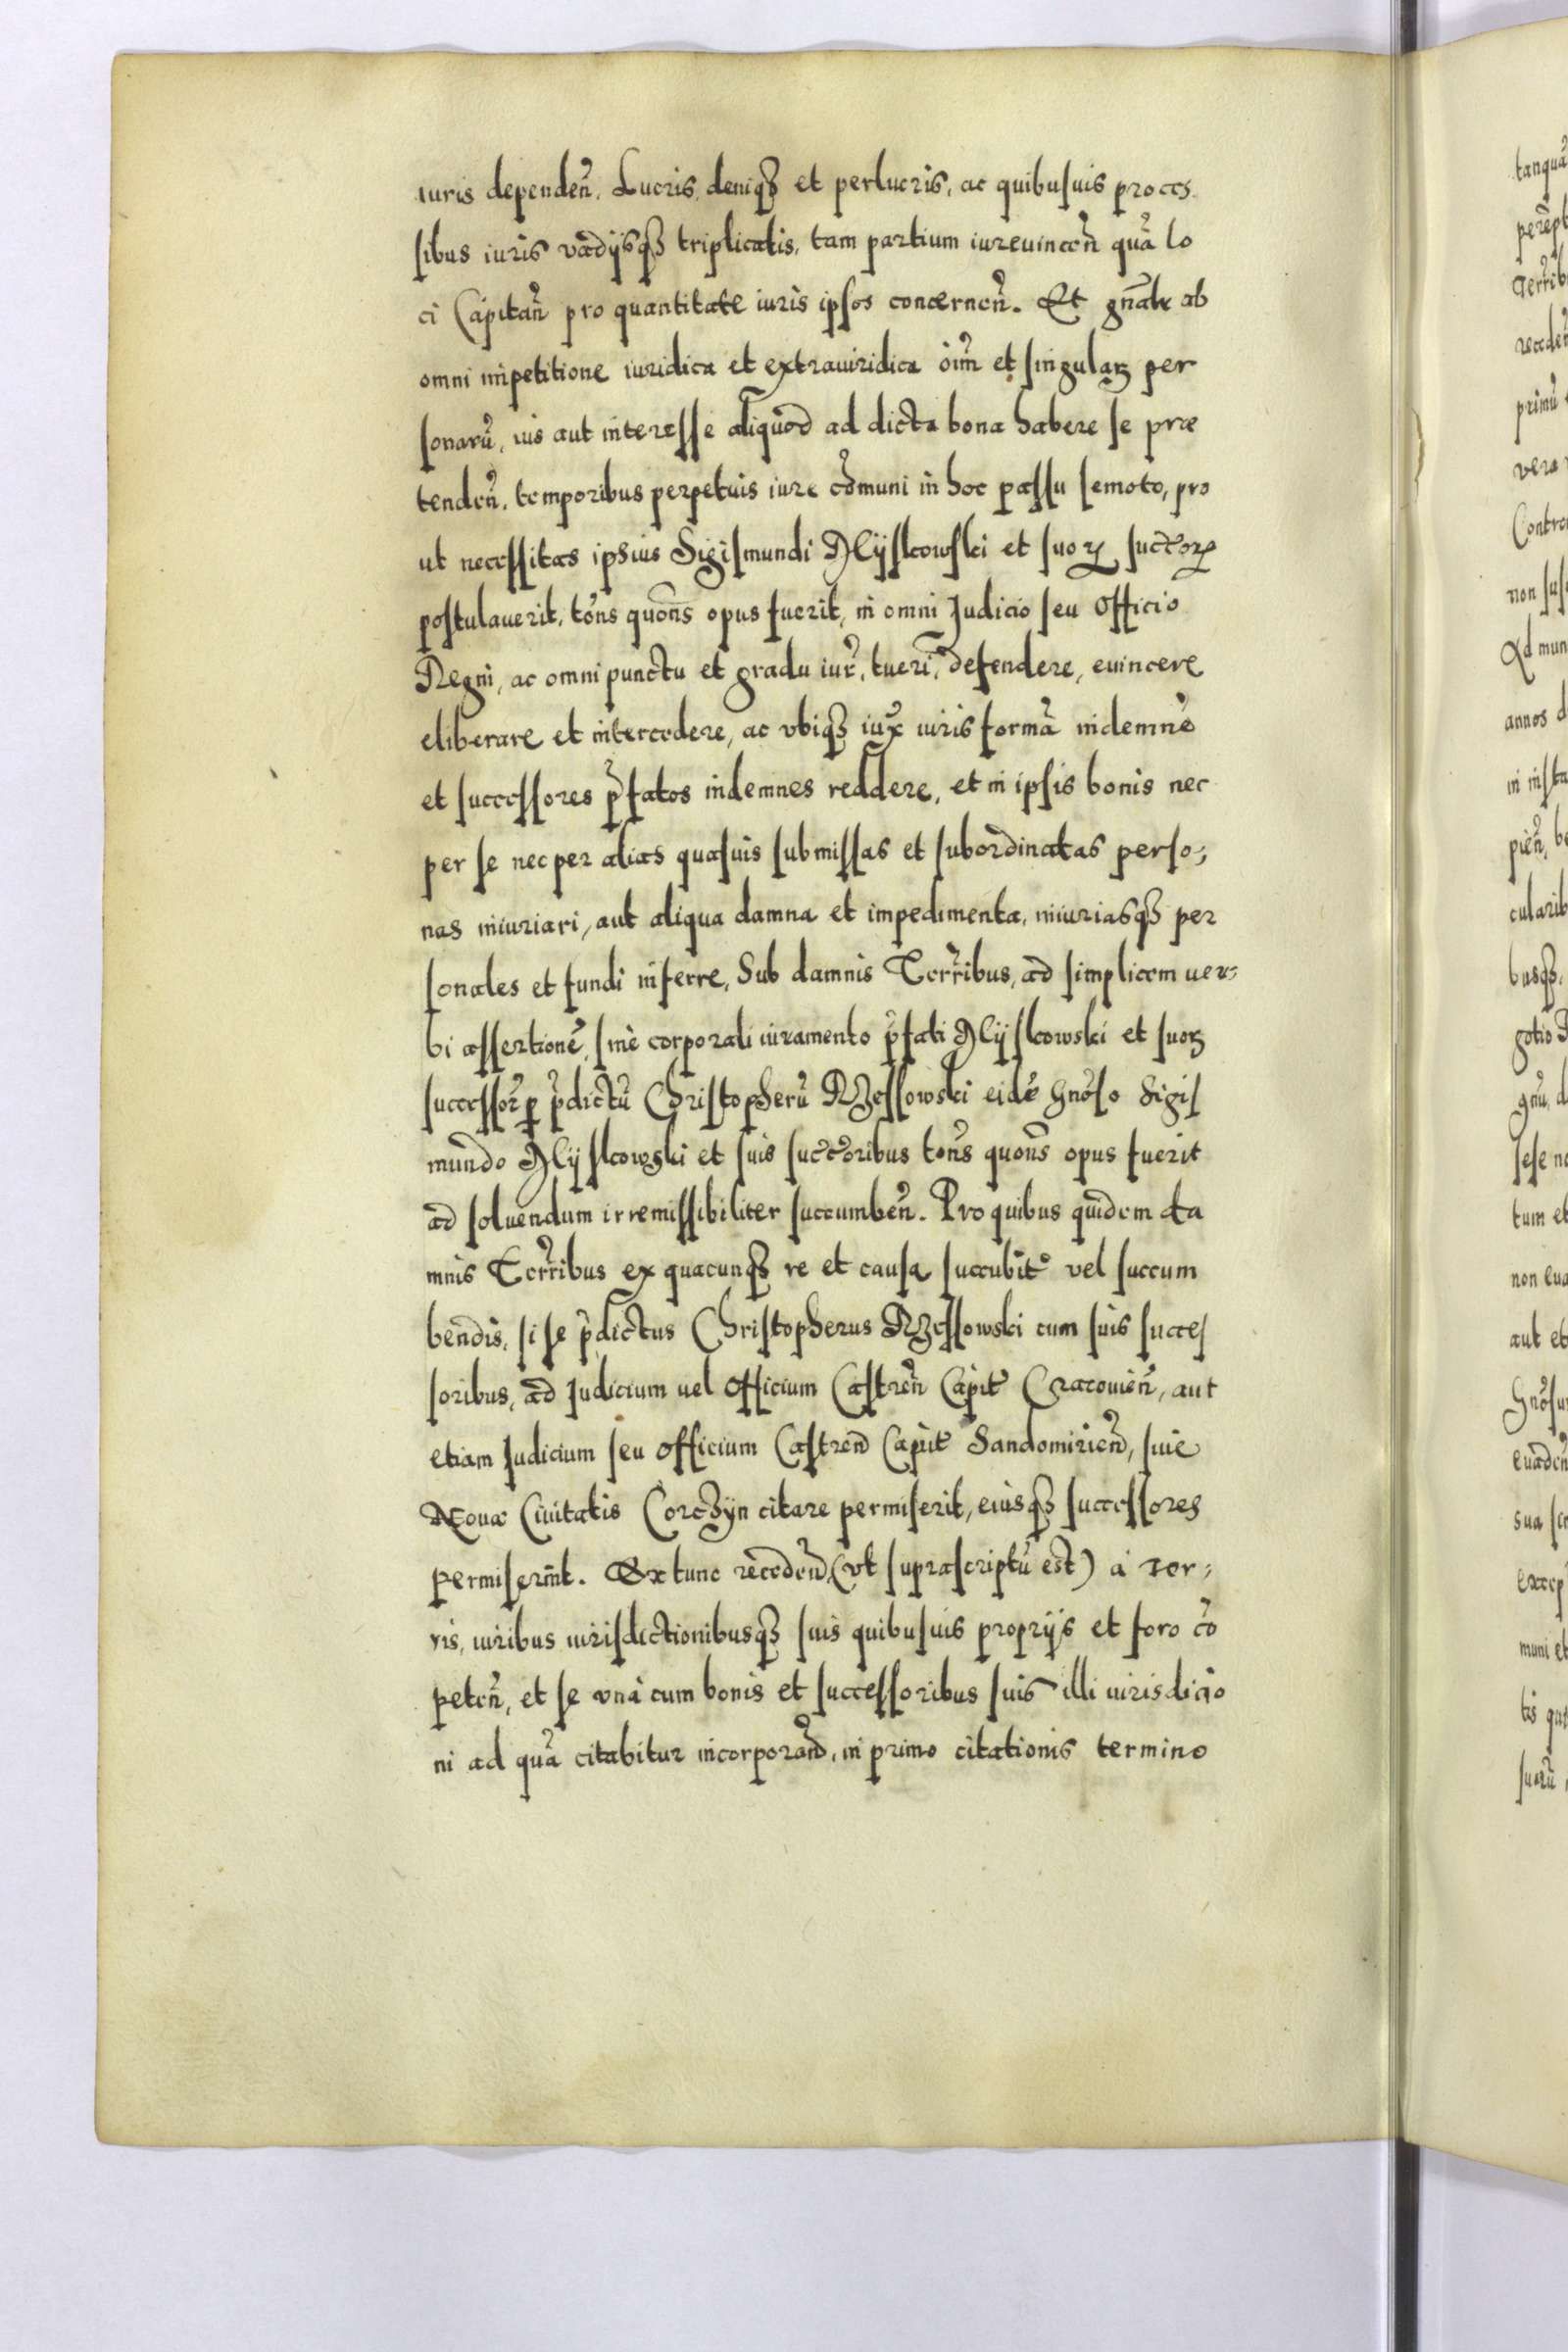 iuris dependeñ. Lucris, deniqꝫ et perlucris, ac quibusuis proces
sibus iuris vadijsqꝫ triplicatis, tam partium iureuinceñ quã lo
ci Capitañ pro quantitate iuris ipsos concerneñ. Et gnãlr ab
omni impetitione iuridica et extraiuridica õim̃ et singularꝫ per
sonarũ, ius aut interesse aliquod ad dicta bona habere se præ
tendeñ, temporibus perpetuis iure cõmuni in hoc passu semoto, pro
ut necessitas ipsius Sigismundi Myslkowski et suoꝝ suctorꝝ
postulauerit, tõns quõns opus fuerit, in omni Judicio seu Officio
Regni, ac omni punctu et gradu iur̃, tueri, defendere, euincere
eliberare et intercedere, ac vbiqꝫ iux̃ iuris formã indemnẽ
et successores p̃fatos indemnes reddere, et in ipsis bonis nec
per se nec per alias quasuis submissas et subordinatas perso-
nas iniuriari, aut aliqua damna et impedimenta, iniuriasqꝫ per
sonales et fundi inferre, Sub damnis Terr̃ibus, ad simplicem uer-
bi assertionẽ, sinè corporali iuramento p̃fati Myslkowski et suorꝫ
successorꝝ p̃dictũ Christopherũ Rzessowski eidẽ Gnõso Sigis
mundo Myslkowski et suis suctoribus tõns quõns opus fuerit
ad soluendum irremissibiliter succumbeñ. Pro quibus quidem da
mnis Terr̃ibus ex quacunqꝫ re et causa succubit° vel succum
bendis, si se p̃dictus Christopherus Rzessowski cum suis succes
soribus, ad Judicium uel Officium Castreñ Capit̃ Cracouieñ, aut
etiam Judicium seu Officium Castreñ Capit̃ Sandomirieñ, siue
Nouæ Ciuitatis Corczyn citare permiserit, eiusqꝫ successores
permiserint̃. Ex tunc recedeñd, (vt suprascriptũ est) à Ter-
ris, iuribus iurisdictionibusqꝫ suis quibusuis proprijs et foro cõ
peteñ, et se vnà cum bonis et successoribus suis illi iurisdictio
ni ad quã citabitur incorporañd, in primo citationis termino